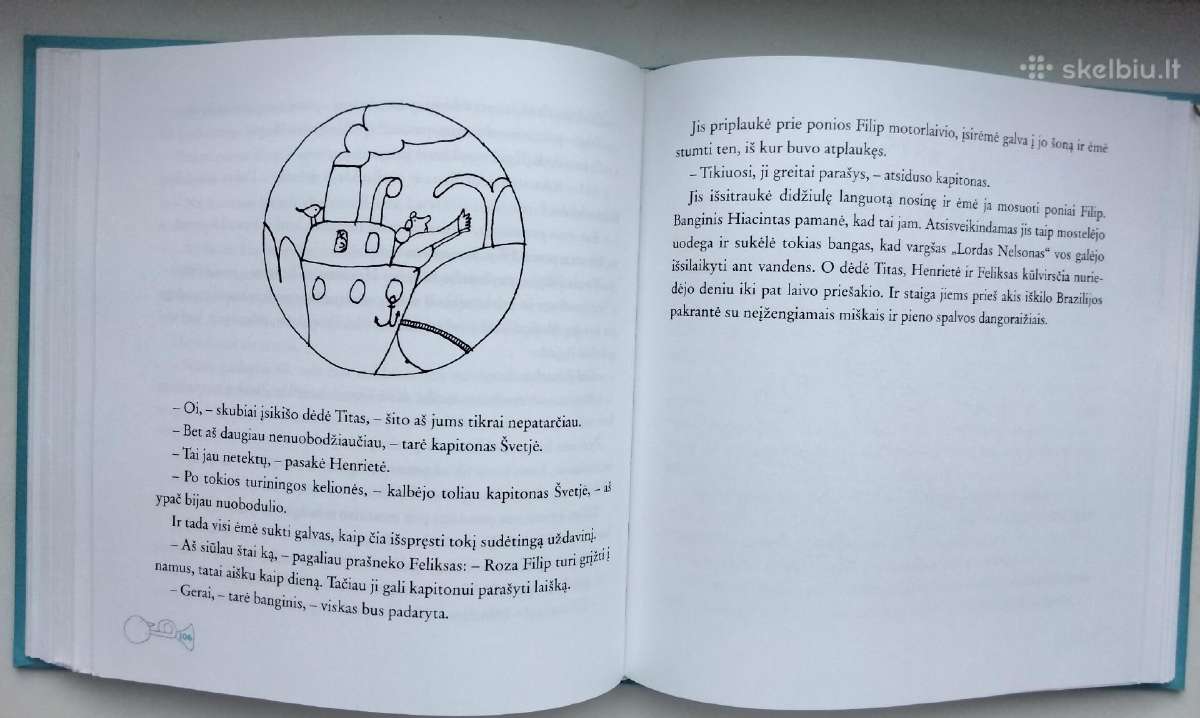 – Oi, – skubiai įsikišo dėdė Titas, – šito aš jums tikrai nepatarčiau.
– Bet aš daugiau nenuobodžiaučiau, – tarė kapitonas Švetjė.
– Tai jau netektų, – pasakė Henrietė.
– Po tokios turiningos kelionės, – kalbėjo toliau kapitonas Švetjė, – aš
ypač bijau nuobodulio.
Ir tada visi ėmė sukti galvas, kaip čia išspręsti tokį sudėtingą uždavinį.
– Aš siūlau štai ką, – pagaliau prašneko Feliksas: – Roza Filip turi grįžti į
namus, tatai aišku kaip dieną. Tačiau ji gali kapitonui parašyti laišką.
– Gerai, – tarė banginis, – viskas bus padaryta.
106
skelbiu.lt
Jis priplaukė prie ponios Filip motorlaivio, įsirėmė galva į jo šoną ir ėmė
stumti ten, iš kur buvo atplaukęs.
– Tikiuosi, ji greitai parašys, – atsiduso kapitonas.
Jis išsitraukė didžiulę languotą nosinę ir ėmė ja mosuoti poniai Filip.
Banginis Hiacintas pamanė, kad tai jam. Atsisveikindamas jis taip mostelėjo
uodega ir sukėlė tokias bangas, kad vargšas „Lordas Nelsonas“ vos galėjo
išsilaikyti ant vandens. O dėdė Titas, Henrietė ir Feliksas kūlvirsčia nurie-
dėjo deniu iki pat laivo priešakio. Ir staiga jiems prieš akis iškilo Brazilijos
pakrantė su neįžengiamais miškais ir pieno spalvos dangoraižiais.